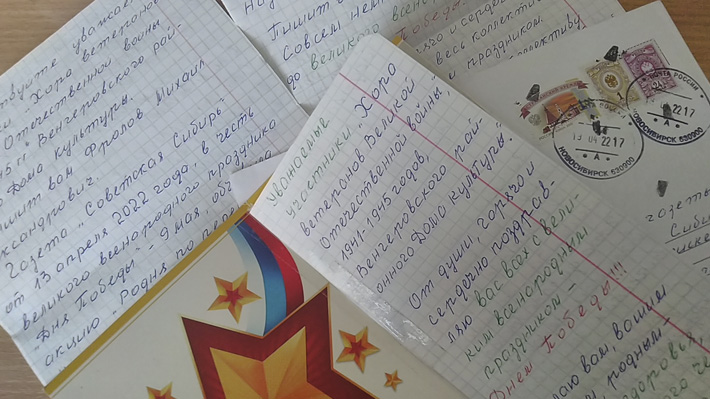 уважае
Хора ветеранов
Отечественной войны
45 гг. Венгеровского рай-
Дома культуры.
вам Фролов Михаил
ксандрович.
Газета "Советская Сибирь"
от 13 апреля 2022 года, в честь
великого всенародного праздника
"Дня Победы" - 9 мая, объ
акцию "Родня по пе
Пишит
Совсем нем
до великого всен
Победы
и серде
весь коллектив
и праздником.
коллективу
Уважаемые
участники "Хора
ветеранов Великой
Отечественной войны"
1941-1945 годов,
Венгеровского рай-
онного Дома культуры.
От души, горячо и
сердечно поздрав-
ляю вас всех с вели-
ким всенародным
праздником -
Днем Победы!!!
лаю вам, вашим
родным-
доровья,
ПОЧТА РОССИИ
22 17
НОВОСИБИРСК 630900
13 04 22 17
- А -
НОВОСИБИРСК 630900
газеты
Сиби